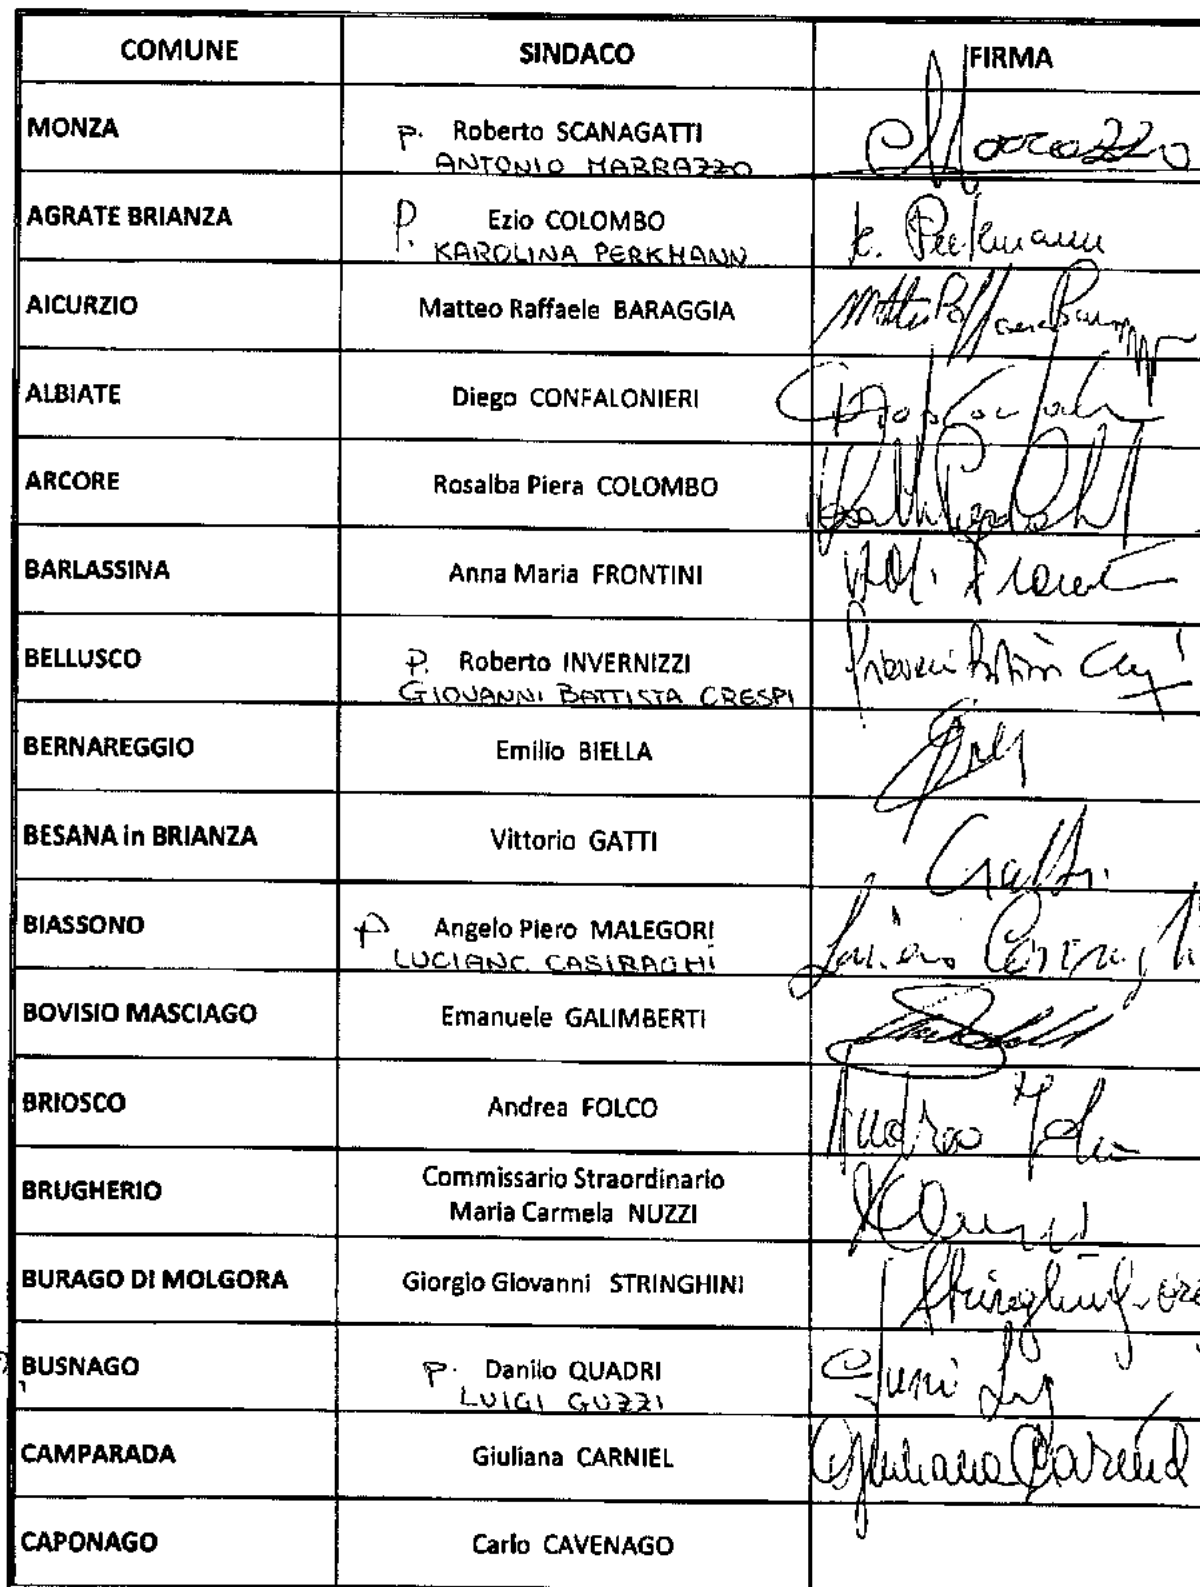 COMUNE SINDACO FIRMA
MONZA P. Roberto SCANAGATTI
ANTONIO MARRAZZO
AGRATE BRIANZA P. Ezio COLOMBO
KAROLINA PERKMANN K. Perkmann
AICURZIO Matteo Raffaele BARAGGIA
ALBIATE Diego CONFALONIERI
ARCORE Rosalba Piera COLOMBO
BARLASSINA Anna Maria FRONTINI
BELLUSCO P. Roberto INVERNIZZI
GIOVANNI BATTISTA CRESPI
BERNAREGGIO Emilio BIELLA
BESANA in BRIANZA Vittorio GATTI Gatti
BIASSONO P Angelo Piero MALEGORI
LUCIANO CASIRAGHI
BOVISIO MASCIAGO Emanuele GALIMBERTI
BRIOSCO Andrea FOLCO Andrea Folco
BRUGHERIO Commissario Straordinario
Maria Carmela NUZZI
BURAGO DI MOLGORA Giorgio Giovanni STRINGHINI
BUSNAGO P. Danilo QUADRI
LUIGI GUZZI
CAMPARADA Giuliana CARNIEL Giuliana Carniel
CAPONAGO Carlo CAVENAGO